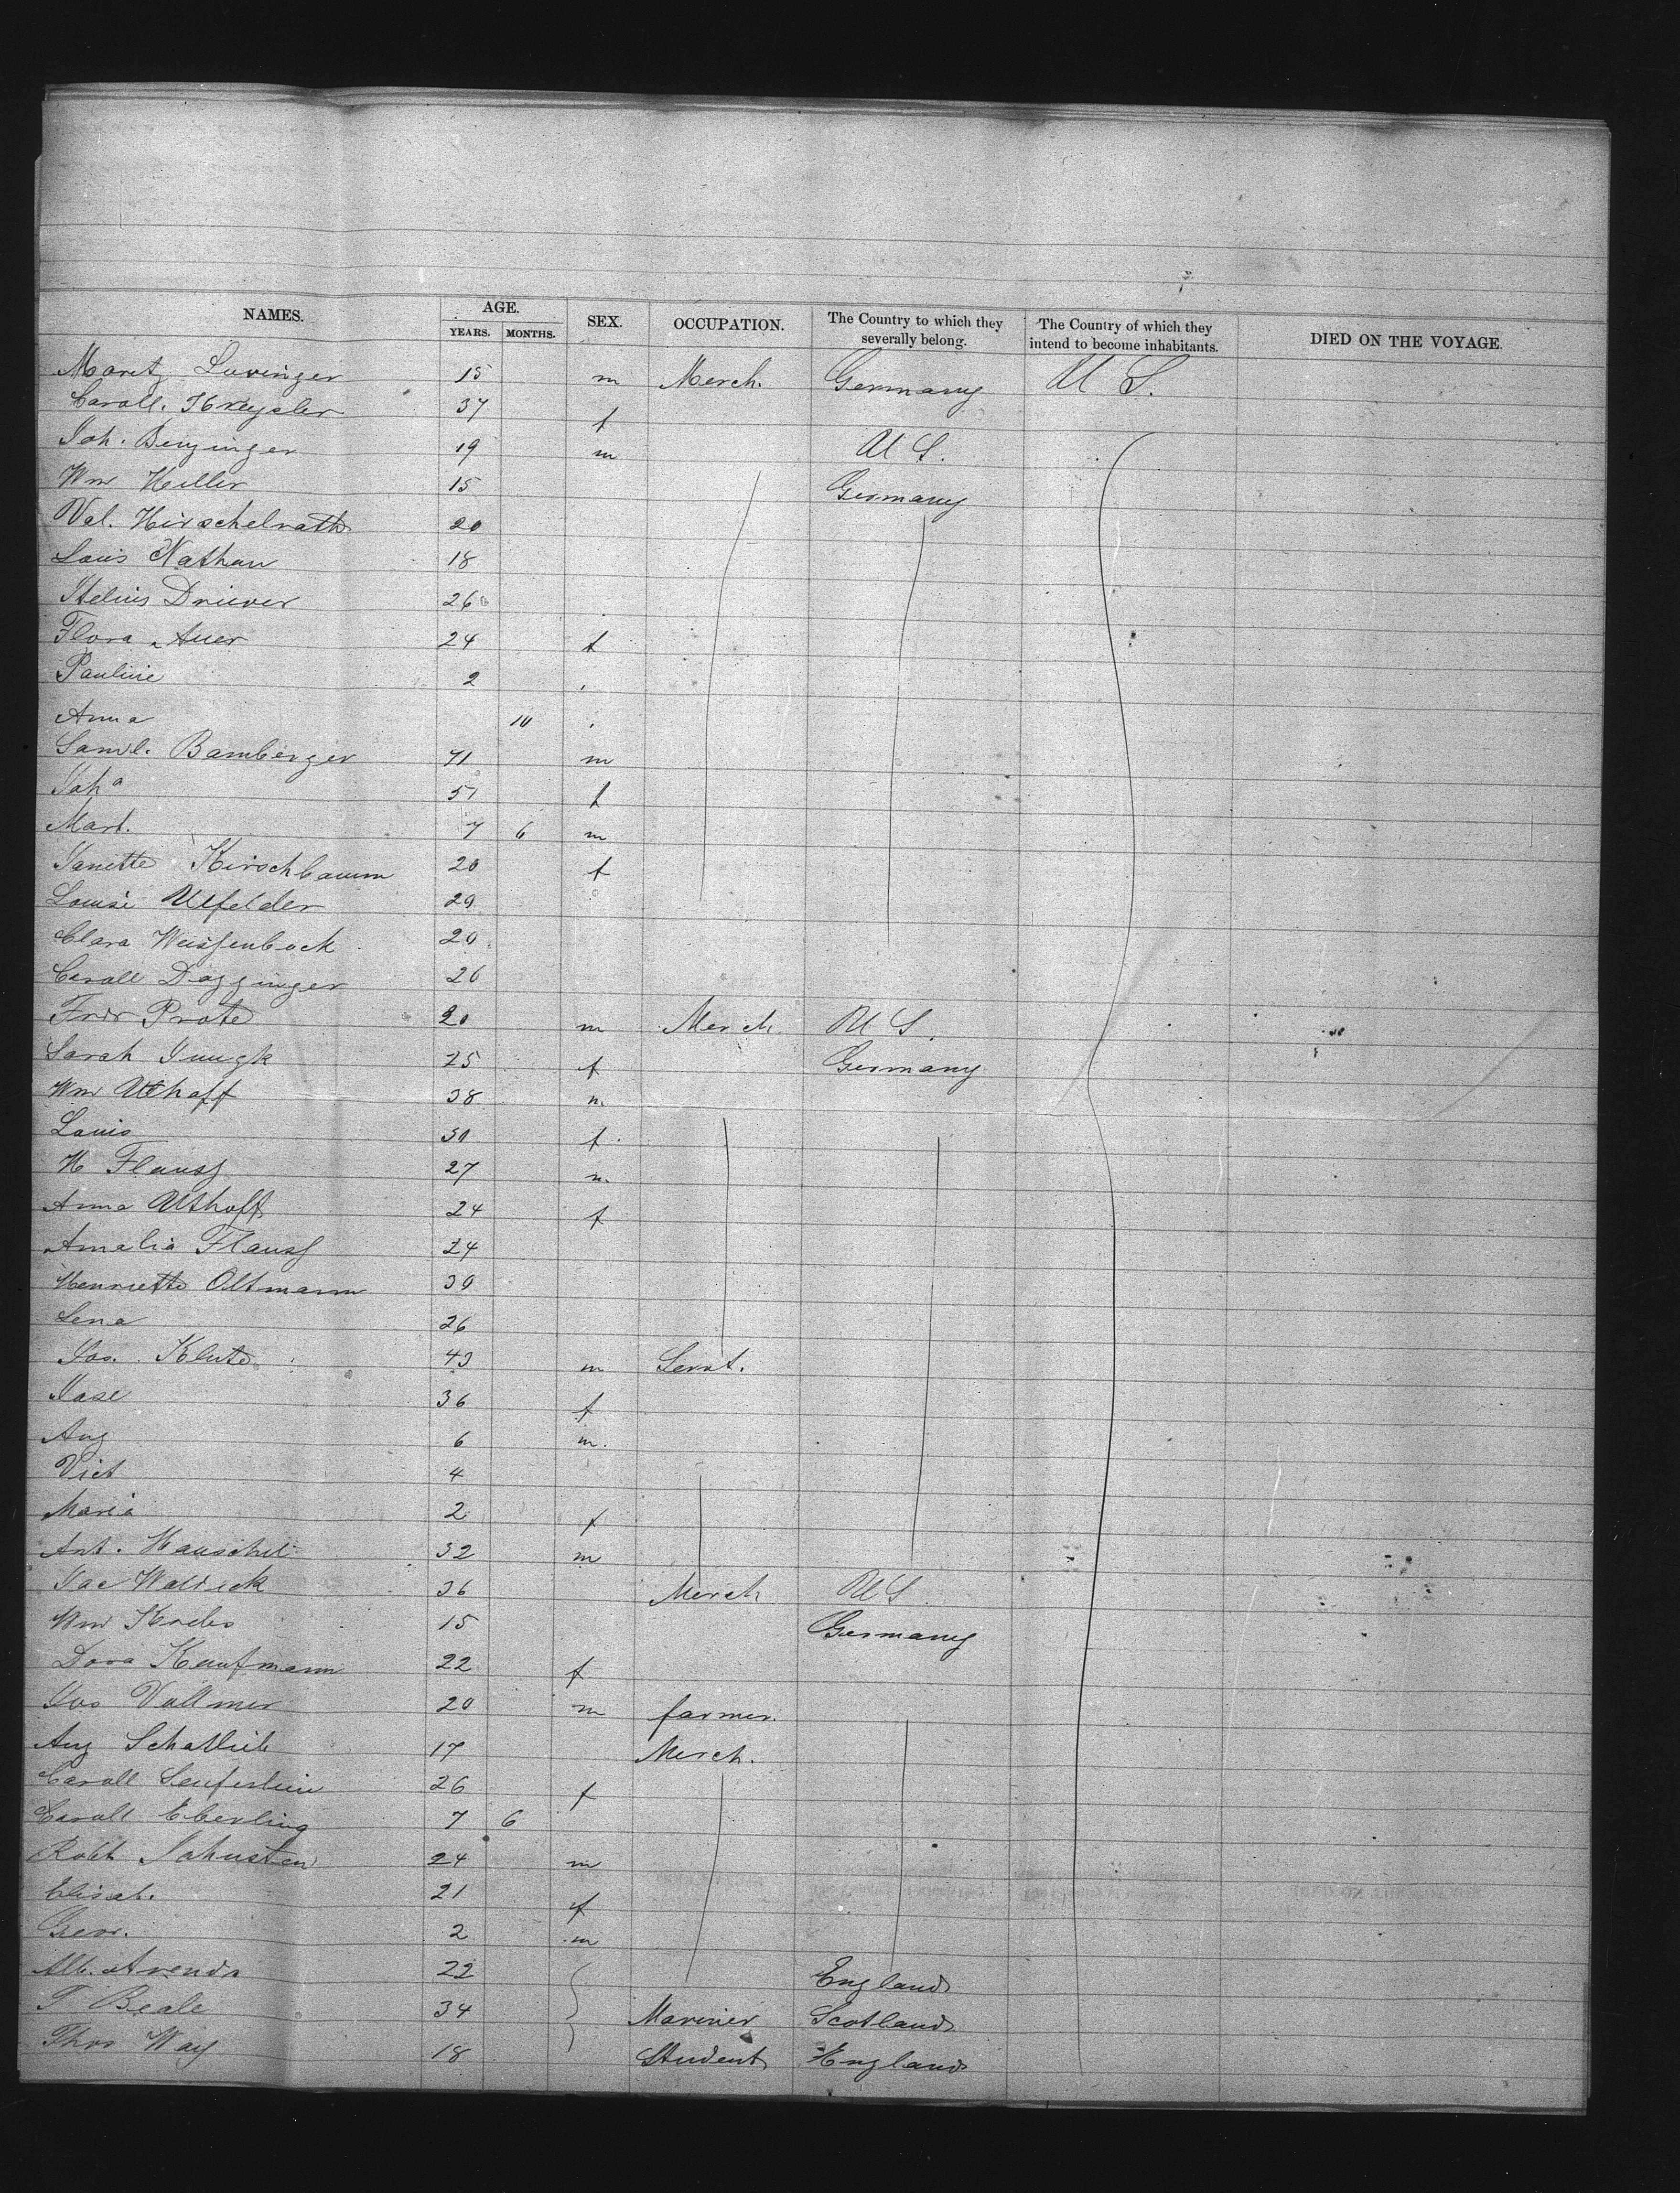 NAMES. AGE. SEX. OCCUPATION. The Country to which they severally belong. The Country of which they intend to become inhabitants. DIED ON THE VOYAGE.
YEARS. MONTHS.
Moritz 15 m Merch. Germany U S.
Caroll. Kreysler 37 f
Joh. Benzinger 19 m U S.
Wm Heller 15 Germany
Val. Hirschelrath 20
Louis Nathan 18
Driever 26
Flora Auer 24 f
Pauline 2
Anna 10
Saml. Bamberger 71 m
Joha 51 f
Mart. 7 6 m
Janette Kirschbaum 20 f
Louise Ulfelder 29
Clara Weissenbock 20
Caroll 26
Frdr Prote 20 m Merch U S.
Sarah Jungk 25 f Germany
Wm Uthoff 38 m
Louis 31 f
H Flauss 27 m
Anna Uthoff 24 f
Amalia Flauss 24
Henriette Oltmann 39
Lena 26
Jos. Klute 43 m Servt.
36 f
Aug 6 m
Vict 4
Maria 2 f
Ant. 32 m
Jac 36 Merch U S
Wm Krebs 15 Germany
Dora Kaufmann 22 f
Jos Vollmer 20 m farmer.
Aug 17 Merch.
Caroll 26 f
Caroll Eberling 7 6
Robt Johnston 24 m
Elisab. 21 f
Geor. 2 m
Alb. Arends 22 England
T Beale 34 Mariner Scotland
Thos Way 18 Student England